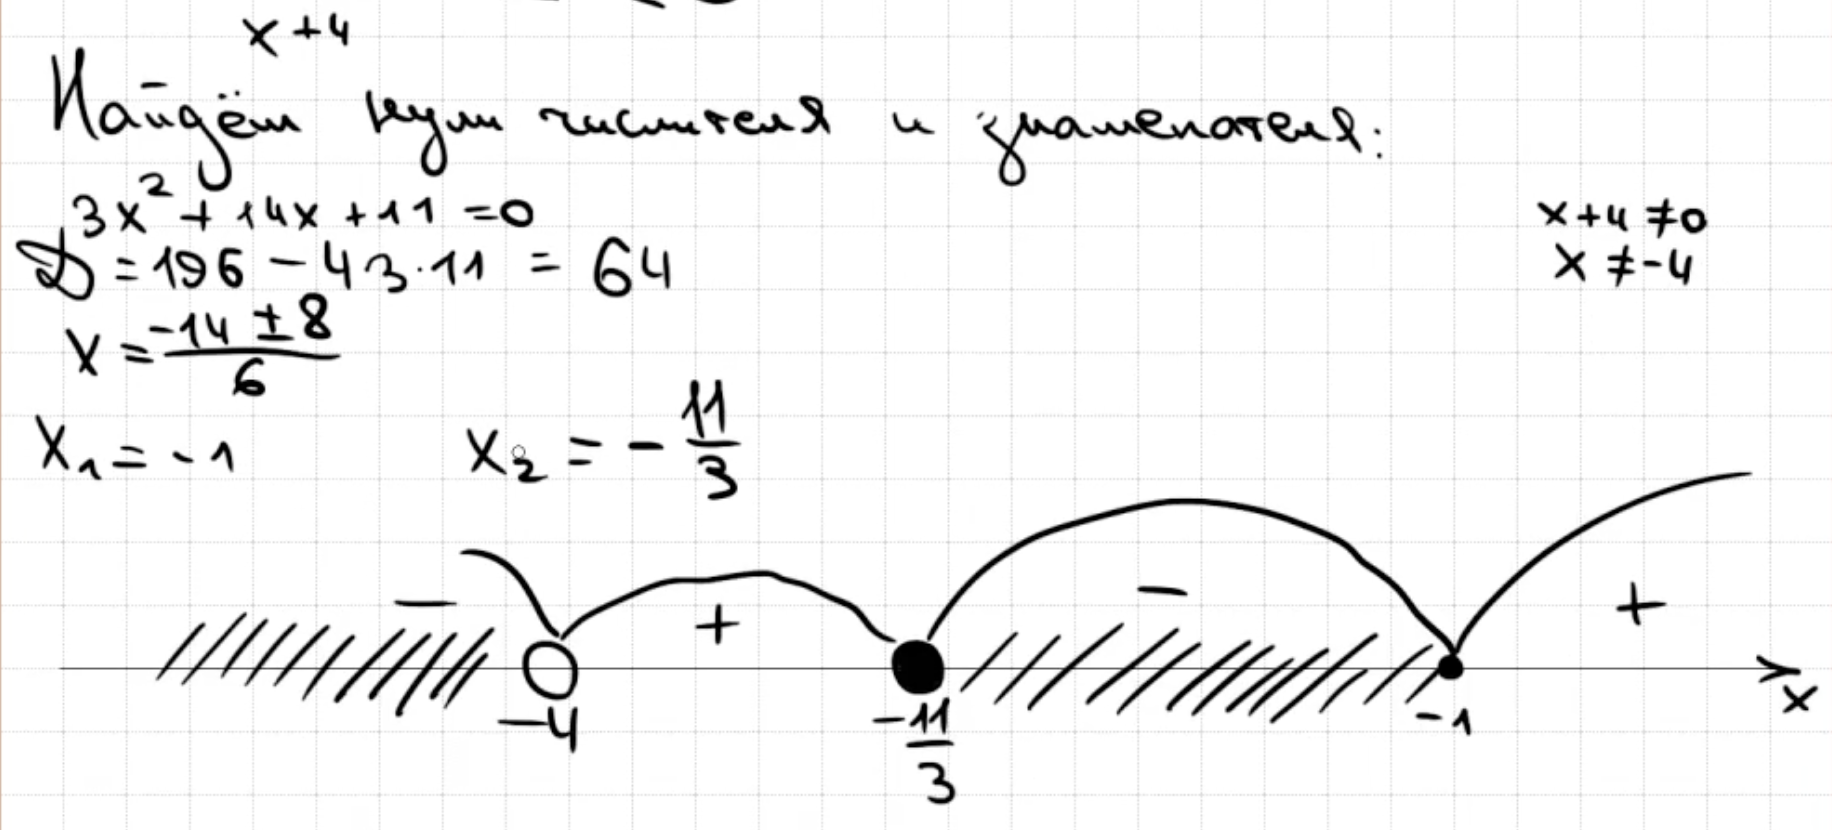 x+4
Найдём нули числителя и знаменателя:
3x² + 14x + 11 = 0
x+4 ≠ 0
D = 196 - 4 3 · 11 = 64
x ≠ -4
x = (-14 ± 8)/6
x₁ = -1 x₂ = -11/3
- + - +
-4 -11/3 -1 x